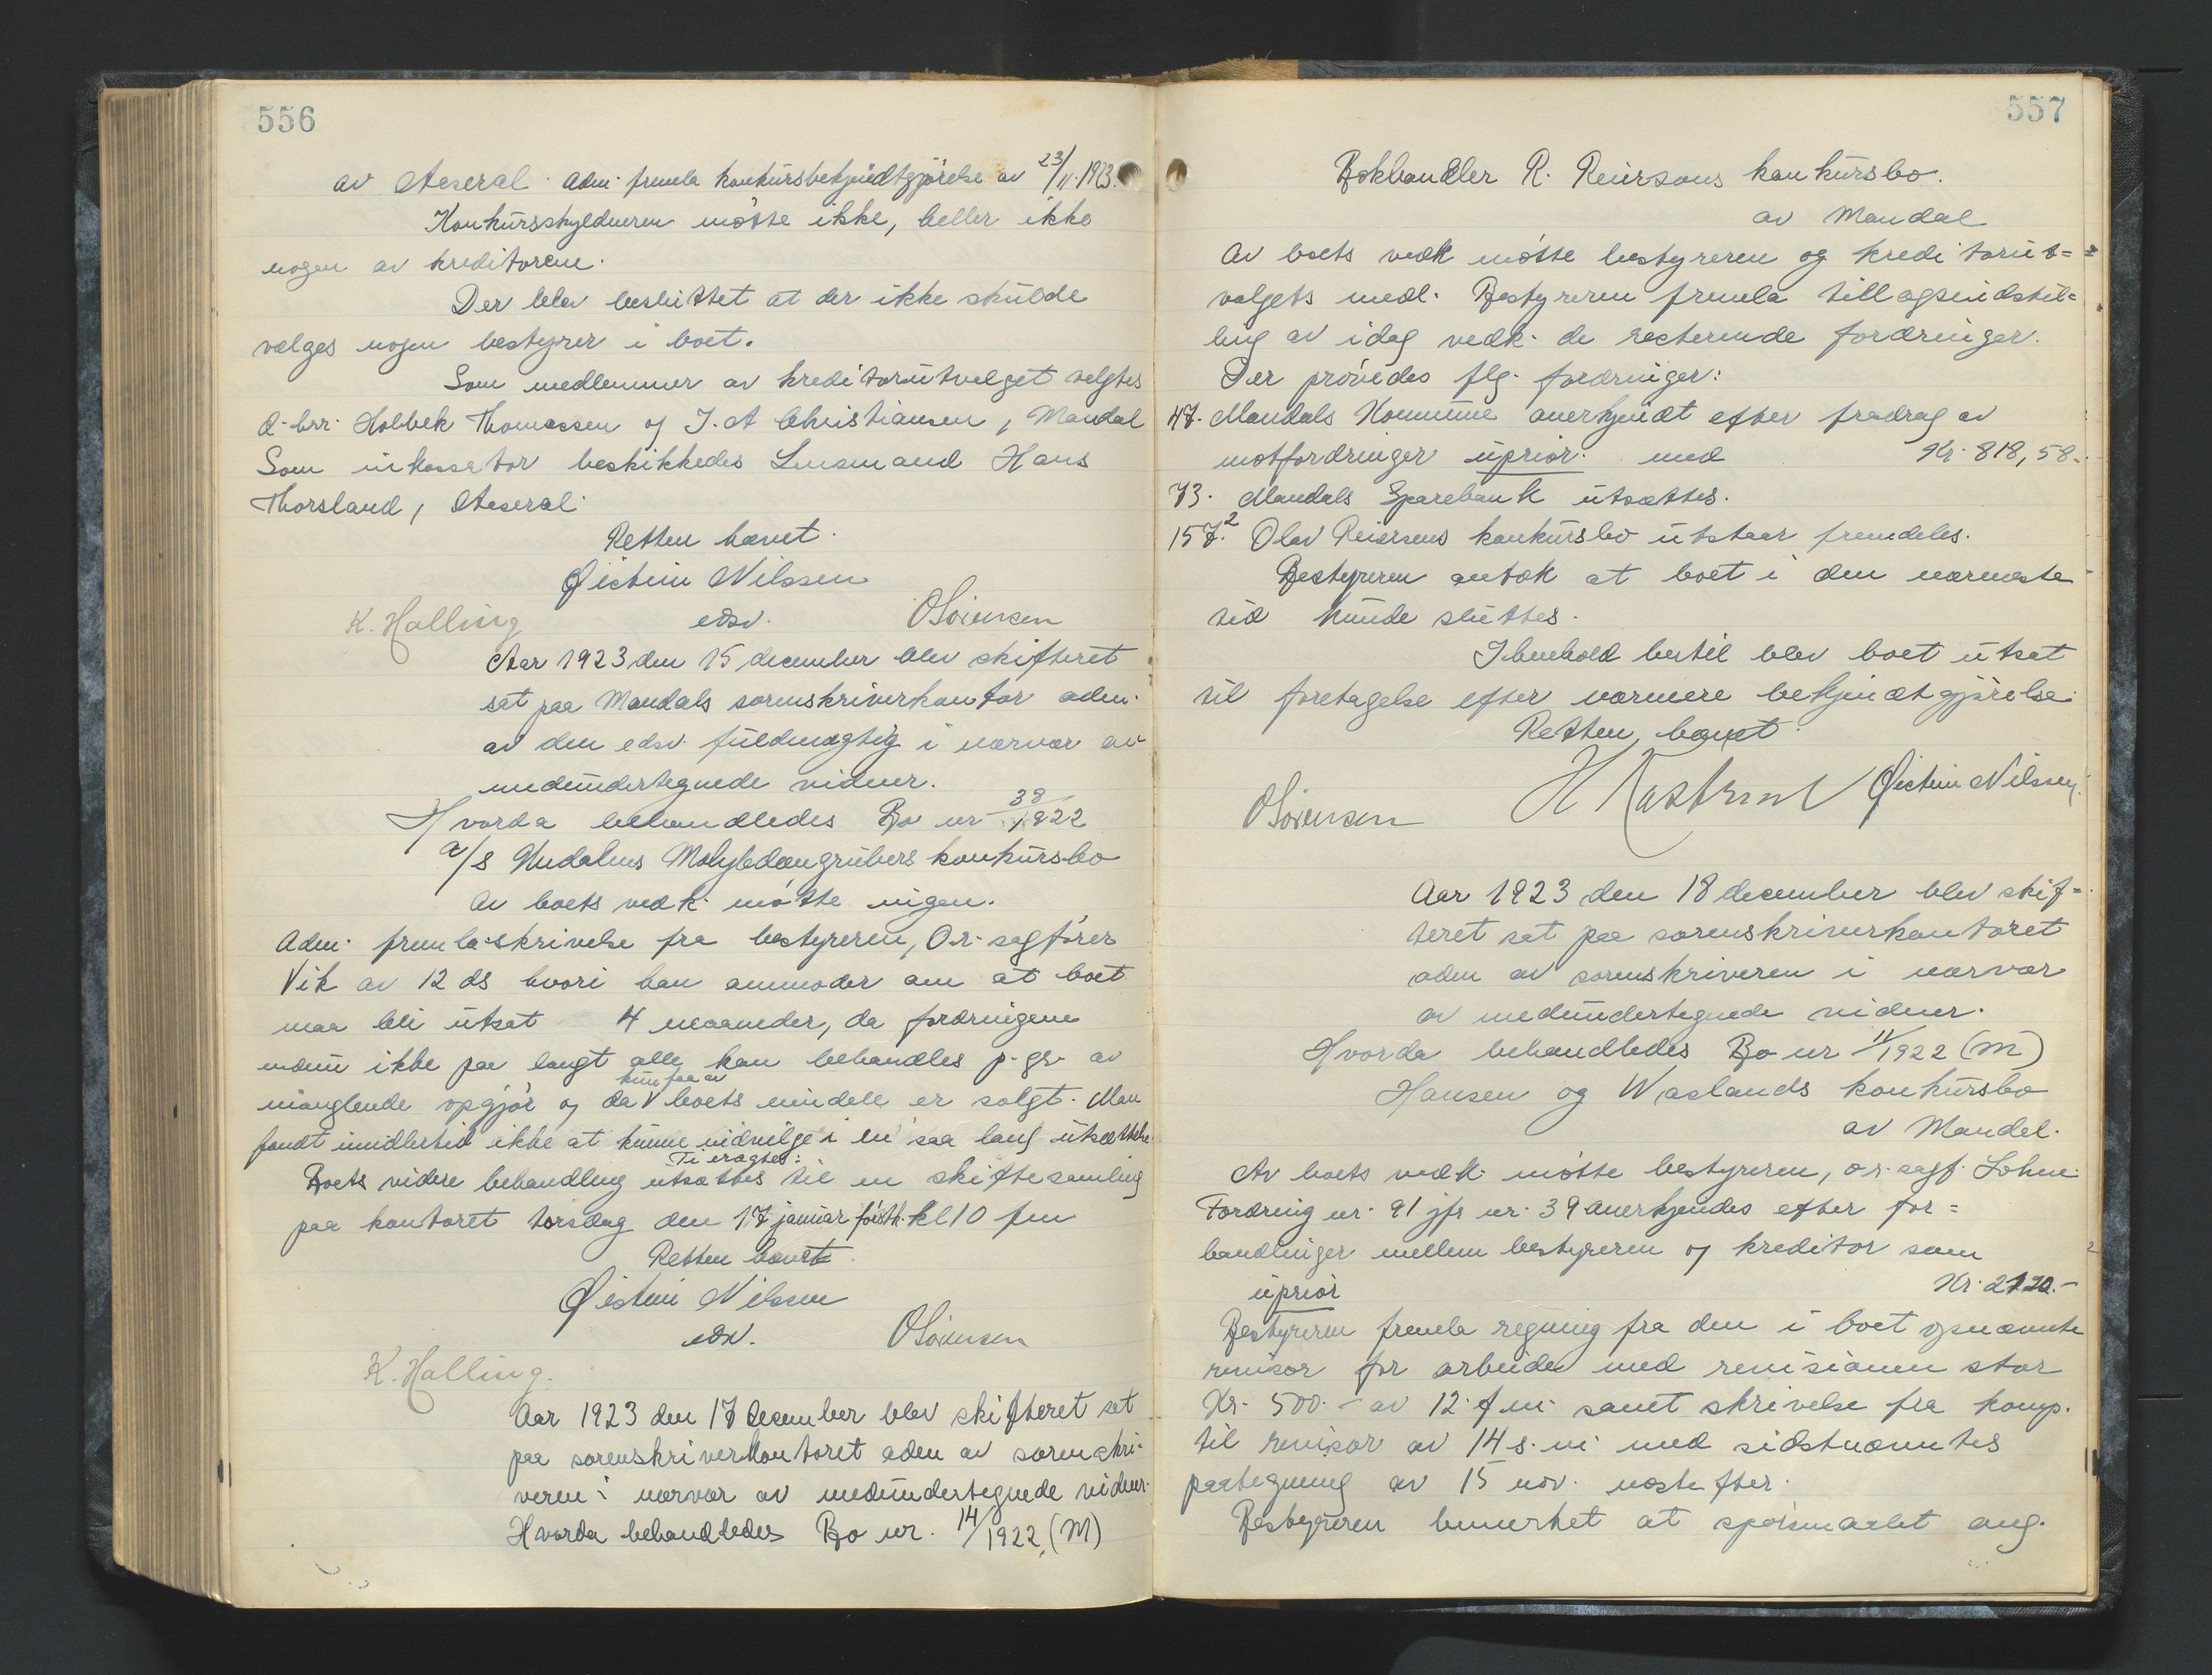 556
av Aaseral. Adm. fremla konkursbekjendtgjørelse av 23/11.1923.
Konkursskyldneren møtte ikke, heller ikke
nogen av kreditorene.
Der blev besluttet at der ikke skulde
vælges nogen bestyrer i boet.
Som medlemmer av kreditorutvalget valgtes
d.hrr. Holbek Thomassen og J. A Christiansen, Mandal
Som inkassator beskikkedes Lensmand Hans
Thorsland, Aaseral.
Retten hævet.
Øistein Nilssen
K. Halling edsv. OSørensen
Aar 1923 den 15 december blev skifteret
sat paa Mandals sorenskriverkontor adm.
av den edsv. fuldmægtig i nærvær av
medundertegnede vidner.
Hvorda behandledes Bo nr 38/1922
A/S Knabens Molybdængrubers konkursbo
Av boets vedk. møtte ingen.
Adm. fremla skrivelse fra bestyreren, O.r. sagfører
Vik av 12 ds hvori han anmoder om at boet
maa bli utsat 4 maaneder, da fordringene
endnu ikke paa langt alle kan behandles p. gr. av
manglende opgjør og da kun faa av boets eiendele er solgt. Man
fandt imidlertid ikke at kunne indvilge i en saa lang utsættelse.
Ti eragtes:
Boets videre behandling utsættes til en skiftesamling
paa kontoret torsdag den 17 januar førstk. kl 10 fm
Retten hævet.
Øistein Nilssen
edsv. OSørensen
K. Halling.
Aar 1923 den 17 december blev skifteret sat
paa sorenskriverkontoret adm av sorenskri-
veren i nærvær av medundertegnede vidner.
Hvorda behandledes Bo nr. 14/1922 (M)
557
Bokhandler R. Reiersens konkursbo.
av Mandal
Av boets vedk møtte bestyreren og kreditorut=
valgets medl. Bestyreren fremla tillægsindstil=
ling av idag vedk. de resterende fordringer.
Der prøvedes flg. fordringer:
47. Mandals Kommune anerkjendt efter fradrag av
motfordringer uprior. med Kr. 818,58.
73. Mandals Sparebank utsættes.
157.2 Olav Reiersens konkursbo utstaar fremdeles.
Bestyreren antok at boet i den nærmeste
tid kunde sluttes.
I henhold hertil blev boet utsat
til foretagelse efter nærmere bekjendtgjørelse.
Retten hævet.
OSørensen Øistein Nilssen.
Aar 1923 den 18 december blev skif=
teret sat paa sorenskriverkontoret
adm av sorenskriveren i nærvær
av medundertegnede vidner.
Hvorda behandledes Bo nr 11/1922 (M)
Hansen og Waslands konkursbo
av Mandal.
Av boets vedk. møtte bestyreren, o.r. sagf. Lohne.
Fordring nr. 91 jfr nr. 39 anerkjendes efter for=
handlinger mellem bestyreren og kreditor som
uprior Kr. 2120.-
Bestyreren fremla regning fra den i boet opnævnte
revisor for arbeide med revisionen stor
Kr. 500.- av 12. f.m. samt skrivelse fra komp.
til revisor av 14 s.m. med sidstnævntes
paategning av 15 nov. næstefter.
Bestyreren bemerket at spørsmaalet ang.